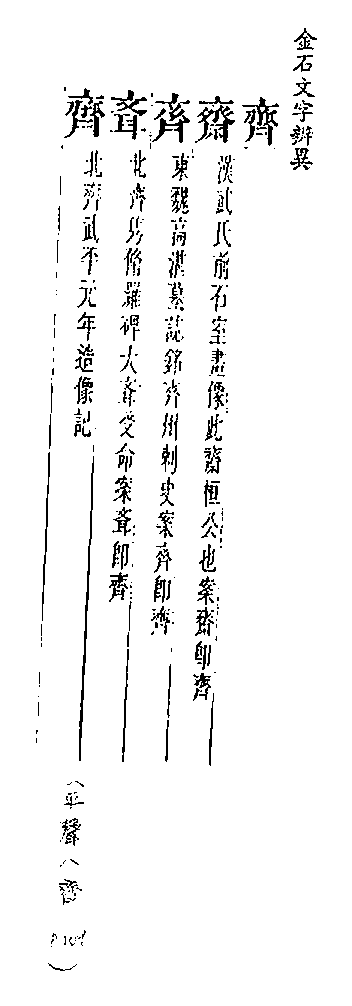 金石文字辨異
齊
齋 漢武氏前石室畫像此齋桓公也案齋即齊
斉 東魏高湛墓誌銘斉州刺史案斉即齊
北齊 碑大 受命案 即齊
齊 北齊武平元年造像記
(平聲八齊
)